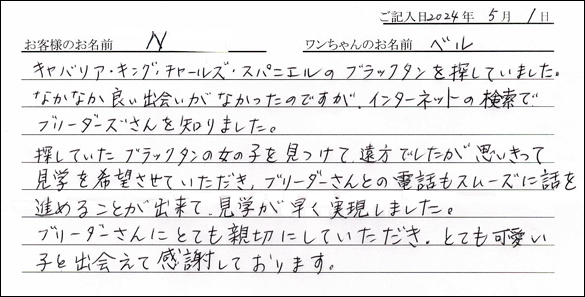 ご記入日2024年 5月 1日
お客様のお名前 N ワンちゃんのお名前 ベル
キャバリア・キング・チャールズ・スパニエルのブラックタンを探していました。
なかなか良い出会いがなかったのですが、インターネットの検索で
ブリーダーズさんを知りました。
探していたブラックタンの女の子を見つけて、遠方でしたが思いきって
見学を希望させていただき、ブリーダーさんとの電話もスムーズに話を
進めることが出来て、見学が早く実現しました。
ブリーダーさんにとても親切にしていただき、とても可愛い
子と出会えて感謝しております。